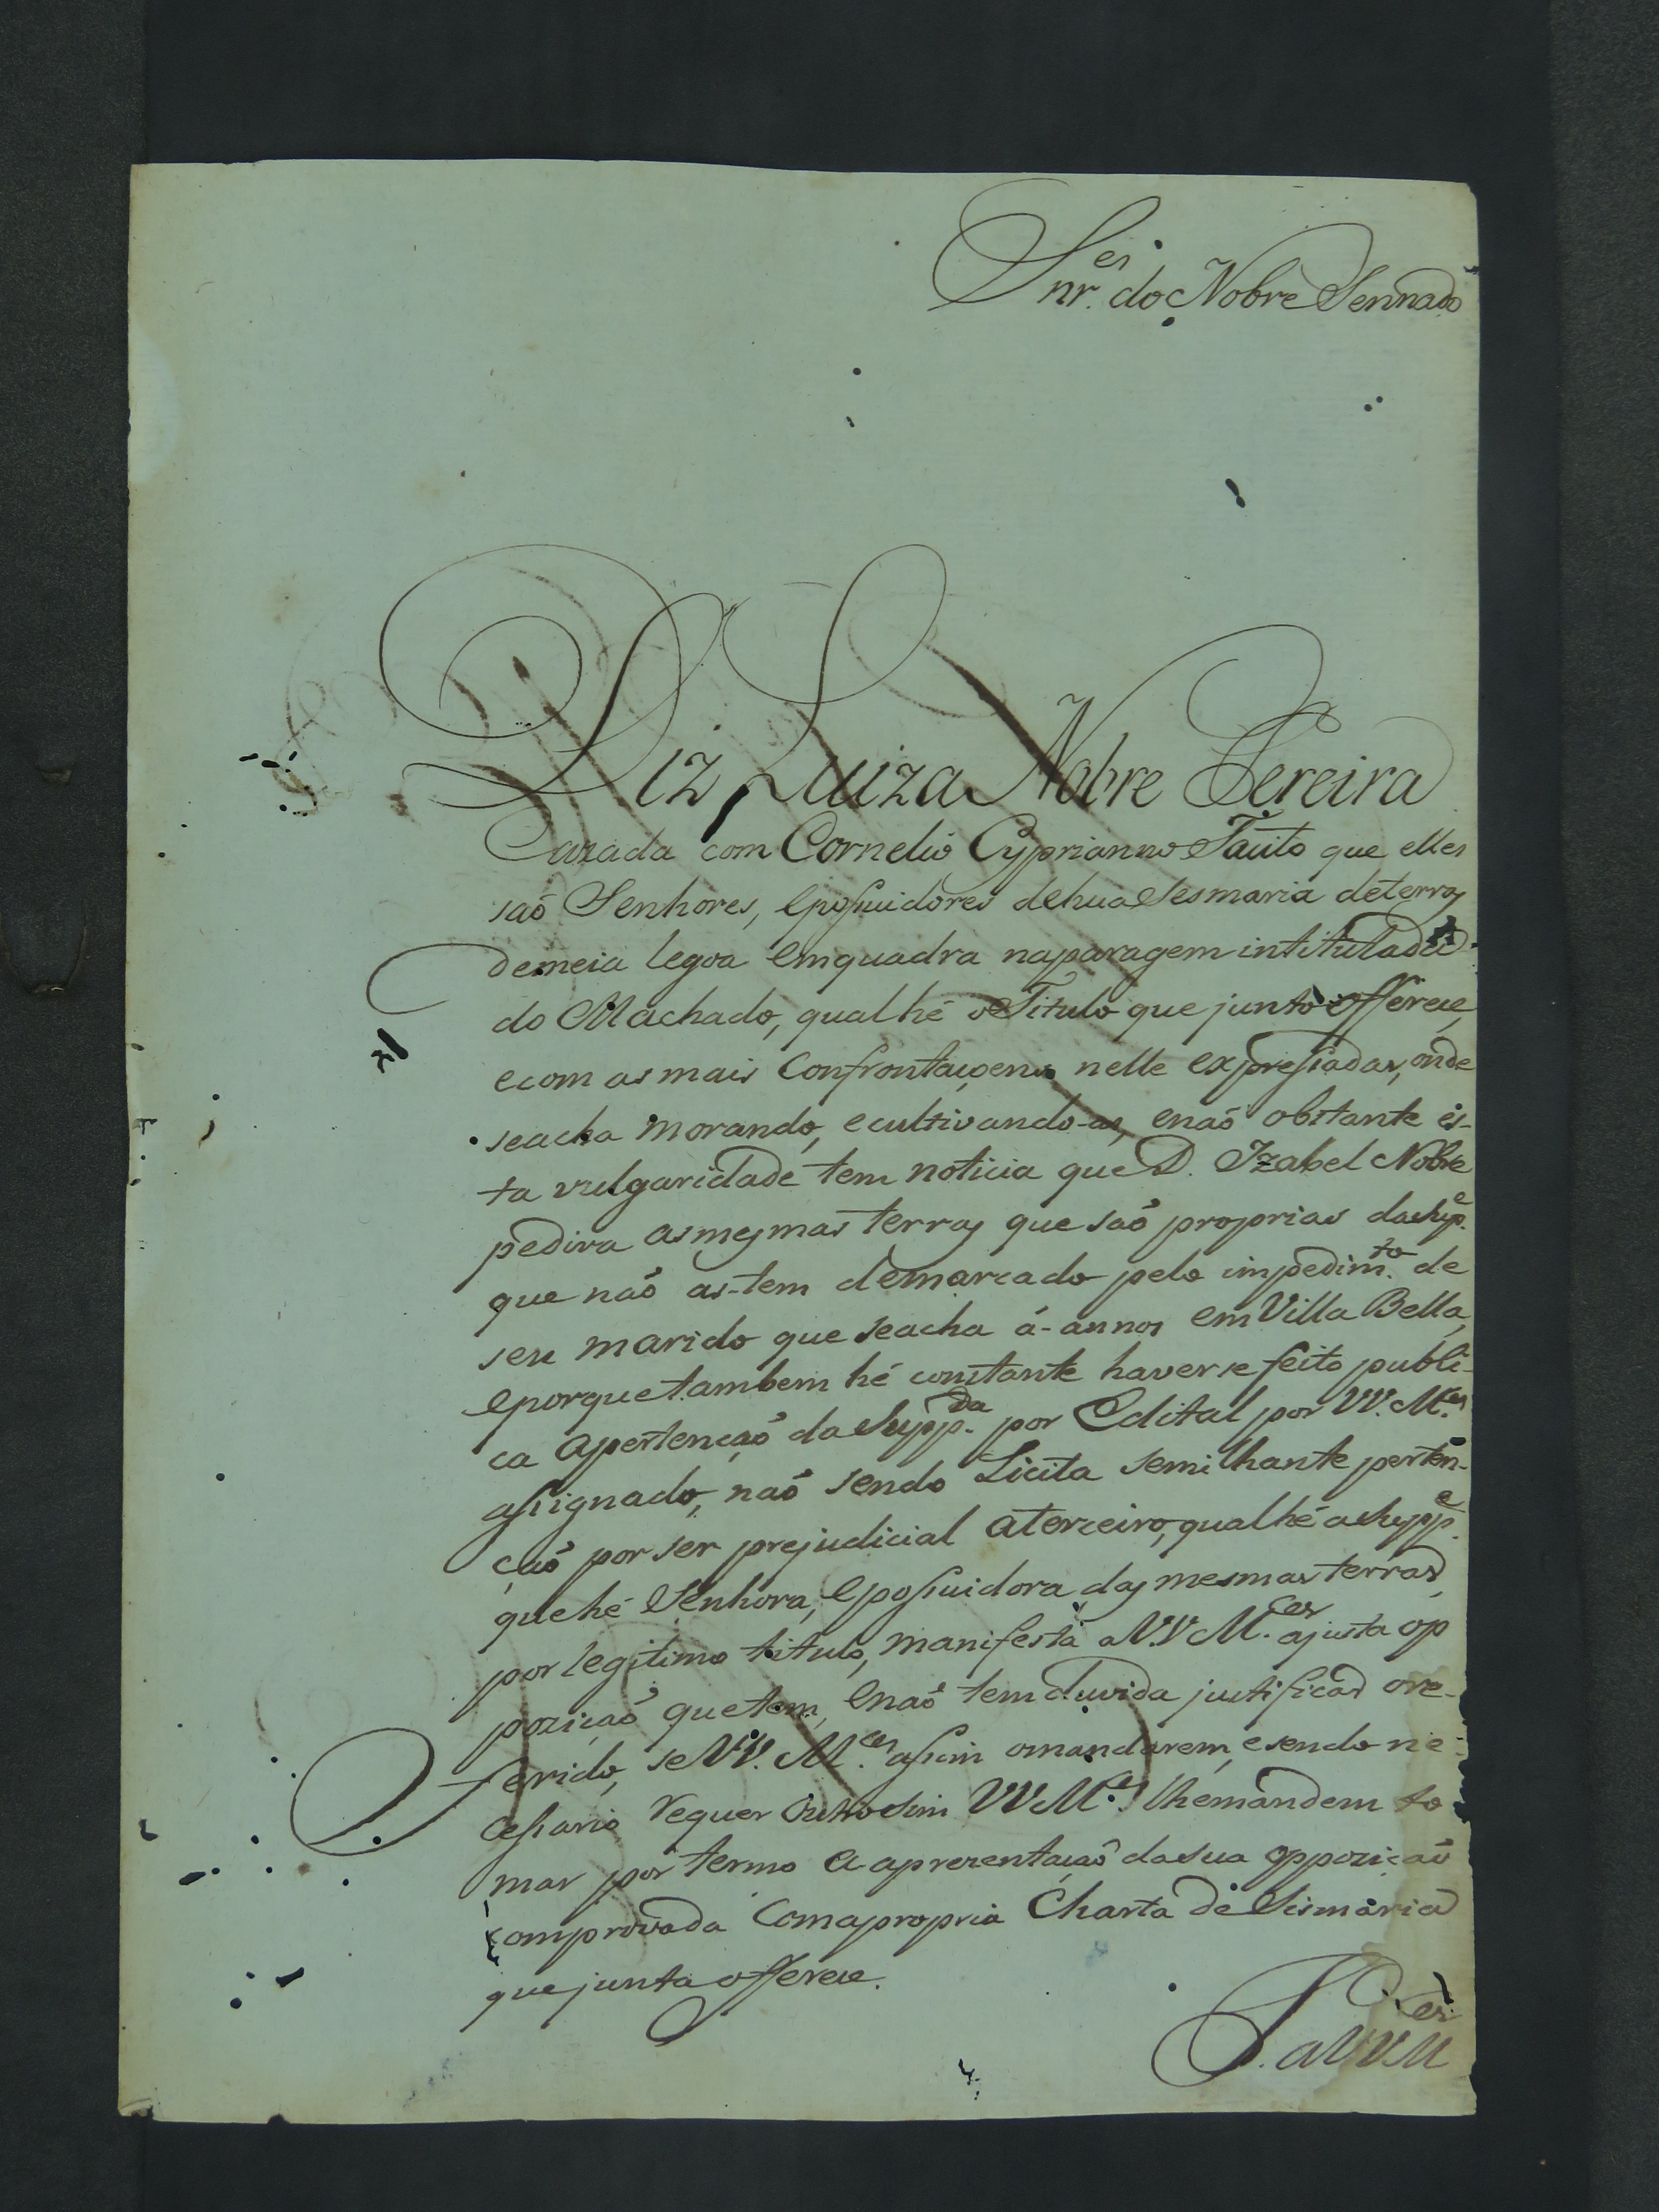 Snr.es do Nobre Sennado
Diz Luiza Nobre Pereira
Cazada com Cornelio Cyprianno Tauito que elles
saó Senhores, eposuidores dehua Sesmaria deterras
demeia legoa emquadra naparagem intitulada
do Machado, qual hé o Titulo que junto offerece,
ecom as mais Confrontaçoens nelle expressadas, onde
seacha morando, e cultivando-as, enaó obstante es-
ta vulgaridade tem noticia que D. Izabel Nobre
pedira asmesmas terras que saó proprias da Sup.e
que naó as-tem demarcado pelo impedim.to de
seu marido que seacha á-annos em Villa Bella,
eporque tambem hé constante haverse feito publi-
ca apertençaó da Supp.da por Edital por VV. M.ces
assignado, naó sendo Licita semilhante perten-
çaó por ser prejudicial aterceiro, qual hé a Supp.e
que hé Senhora, eposuidora das mesmas terras,
por legitimo titulo, manifesta a VV M.ces ajusta op
poziçaó quetem, enaó tem duvida justificar ore-
ferido, se VV. M.ces assim omandarem, esendo ne-
cessario requer outrosim VV M.ces lhemandem to
mar por termo a aprezentaçaó dasua oppoziçaó
comprovada Comapropria Charta de Sismaria
que junta offerece.
P. a VV M.ces